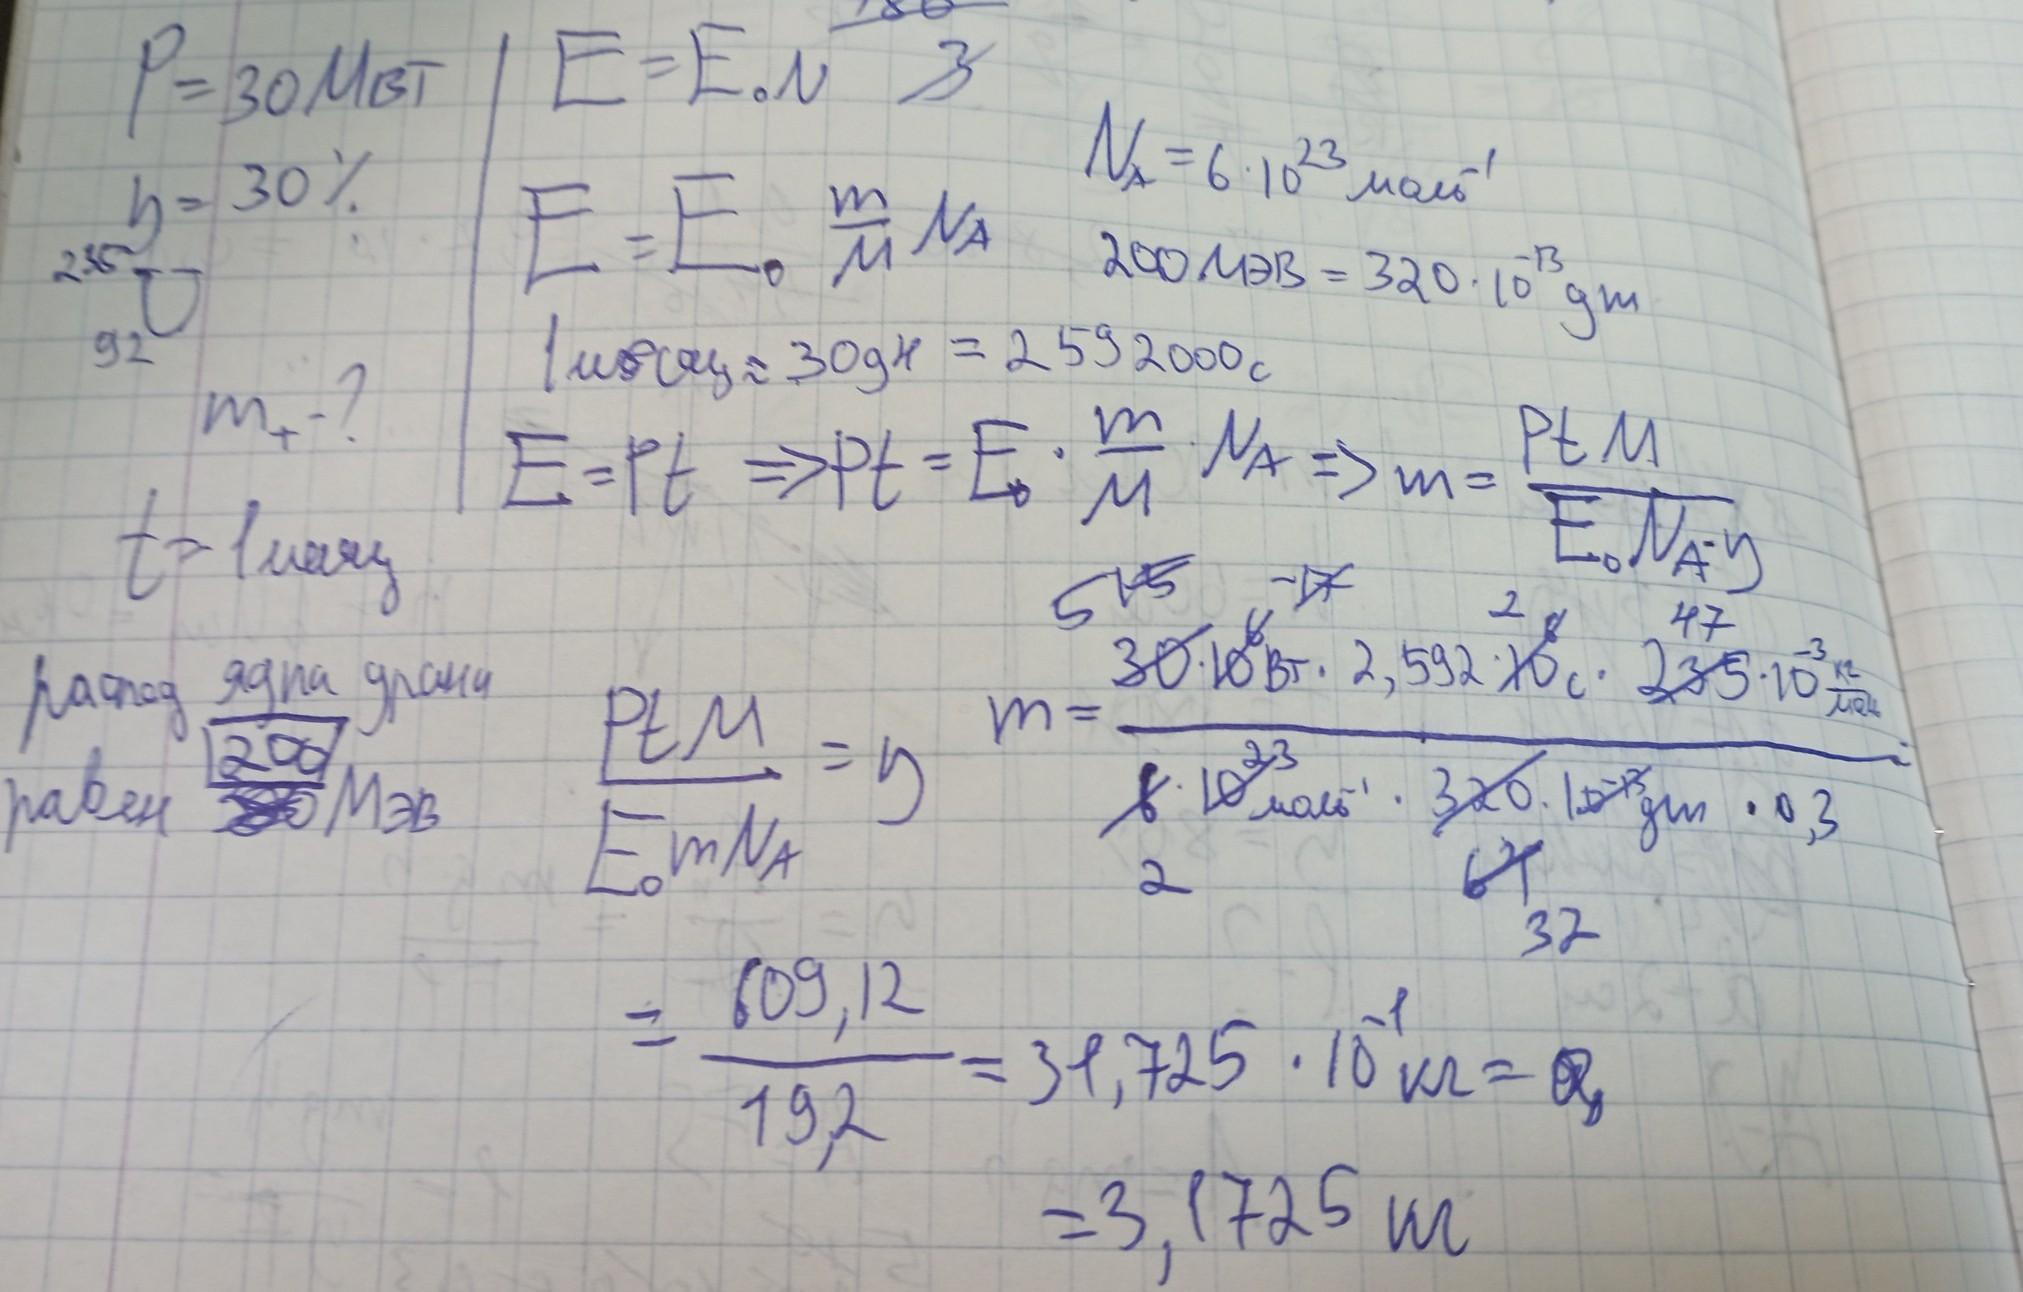 P = 30 МВт
η = 30 %
²³⁵₉₂U
m₊ - ?
t = 1 месяц
распад ядра урана
равен 200 МэВ
E = E₀N
N_A = 6 · 10²³ моль⁻¹
E = E₀ m/M N_A
200 МЭВ = 320 · 10⁻¹³ дж
1 месяц = 30 дн = 2592000 с
E = Pt => Pt = E₀ · m/M · N_A => m = PtM / E₀N_A·η
PtM / E₀mN_A = η
m = 30·10⁶ Вт · 2,592·10⁶ с · 235·10⁻³ кг/моль / 6·10²³ моль⁻¹ · 320·10⁻¹³ дж · 0,3 =
5 15 -17 2 47
2 64 32
= 609,12 / 19,2 = 31,725 · 10⁻¹ кг =
= 3,1725 кг